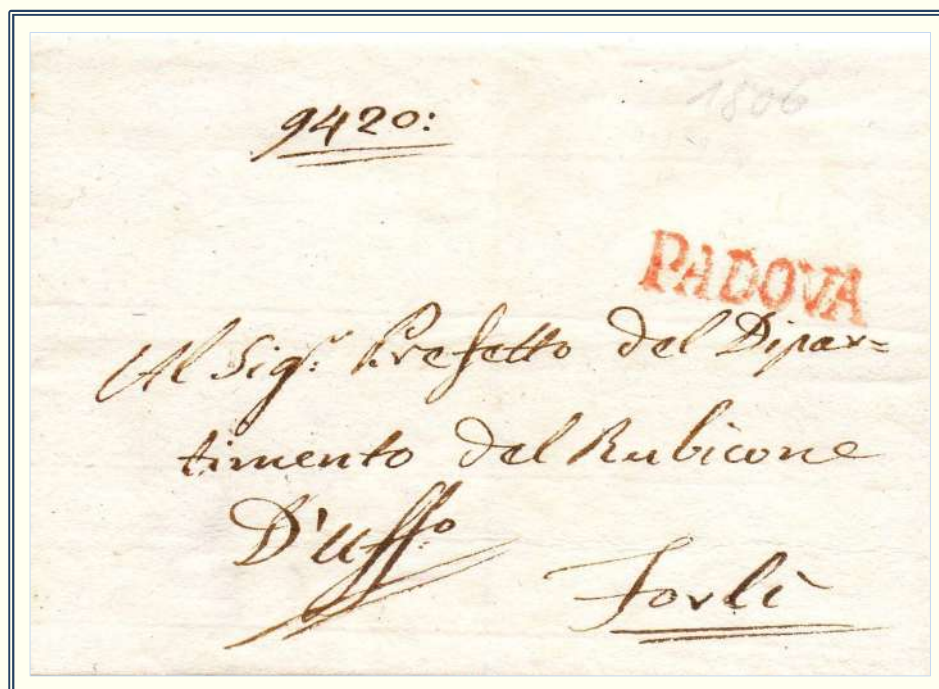 1806
9420:
PADOVA
Al Sigr: Prefetto del Dipar=
timento del Rubicone
D'uffo.
Forlì